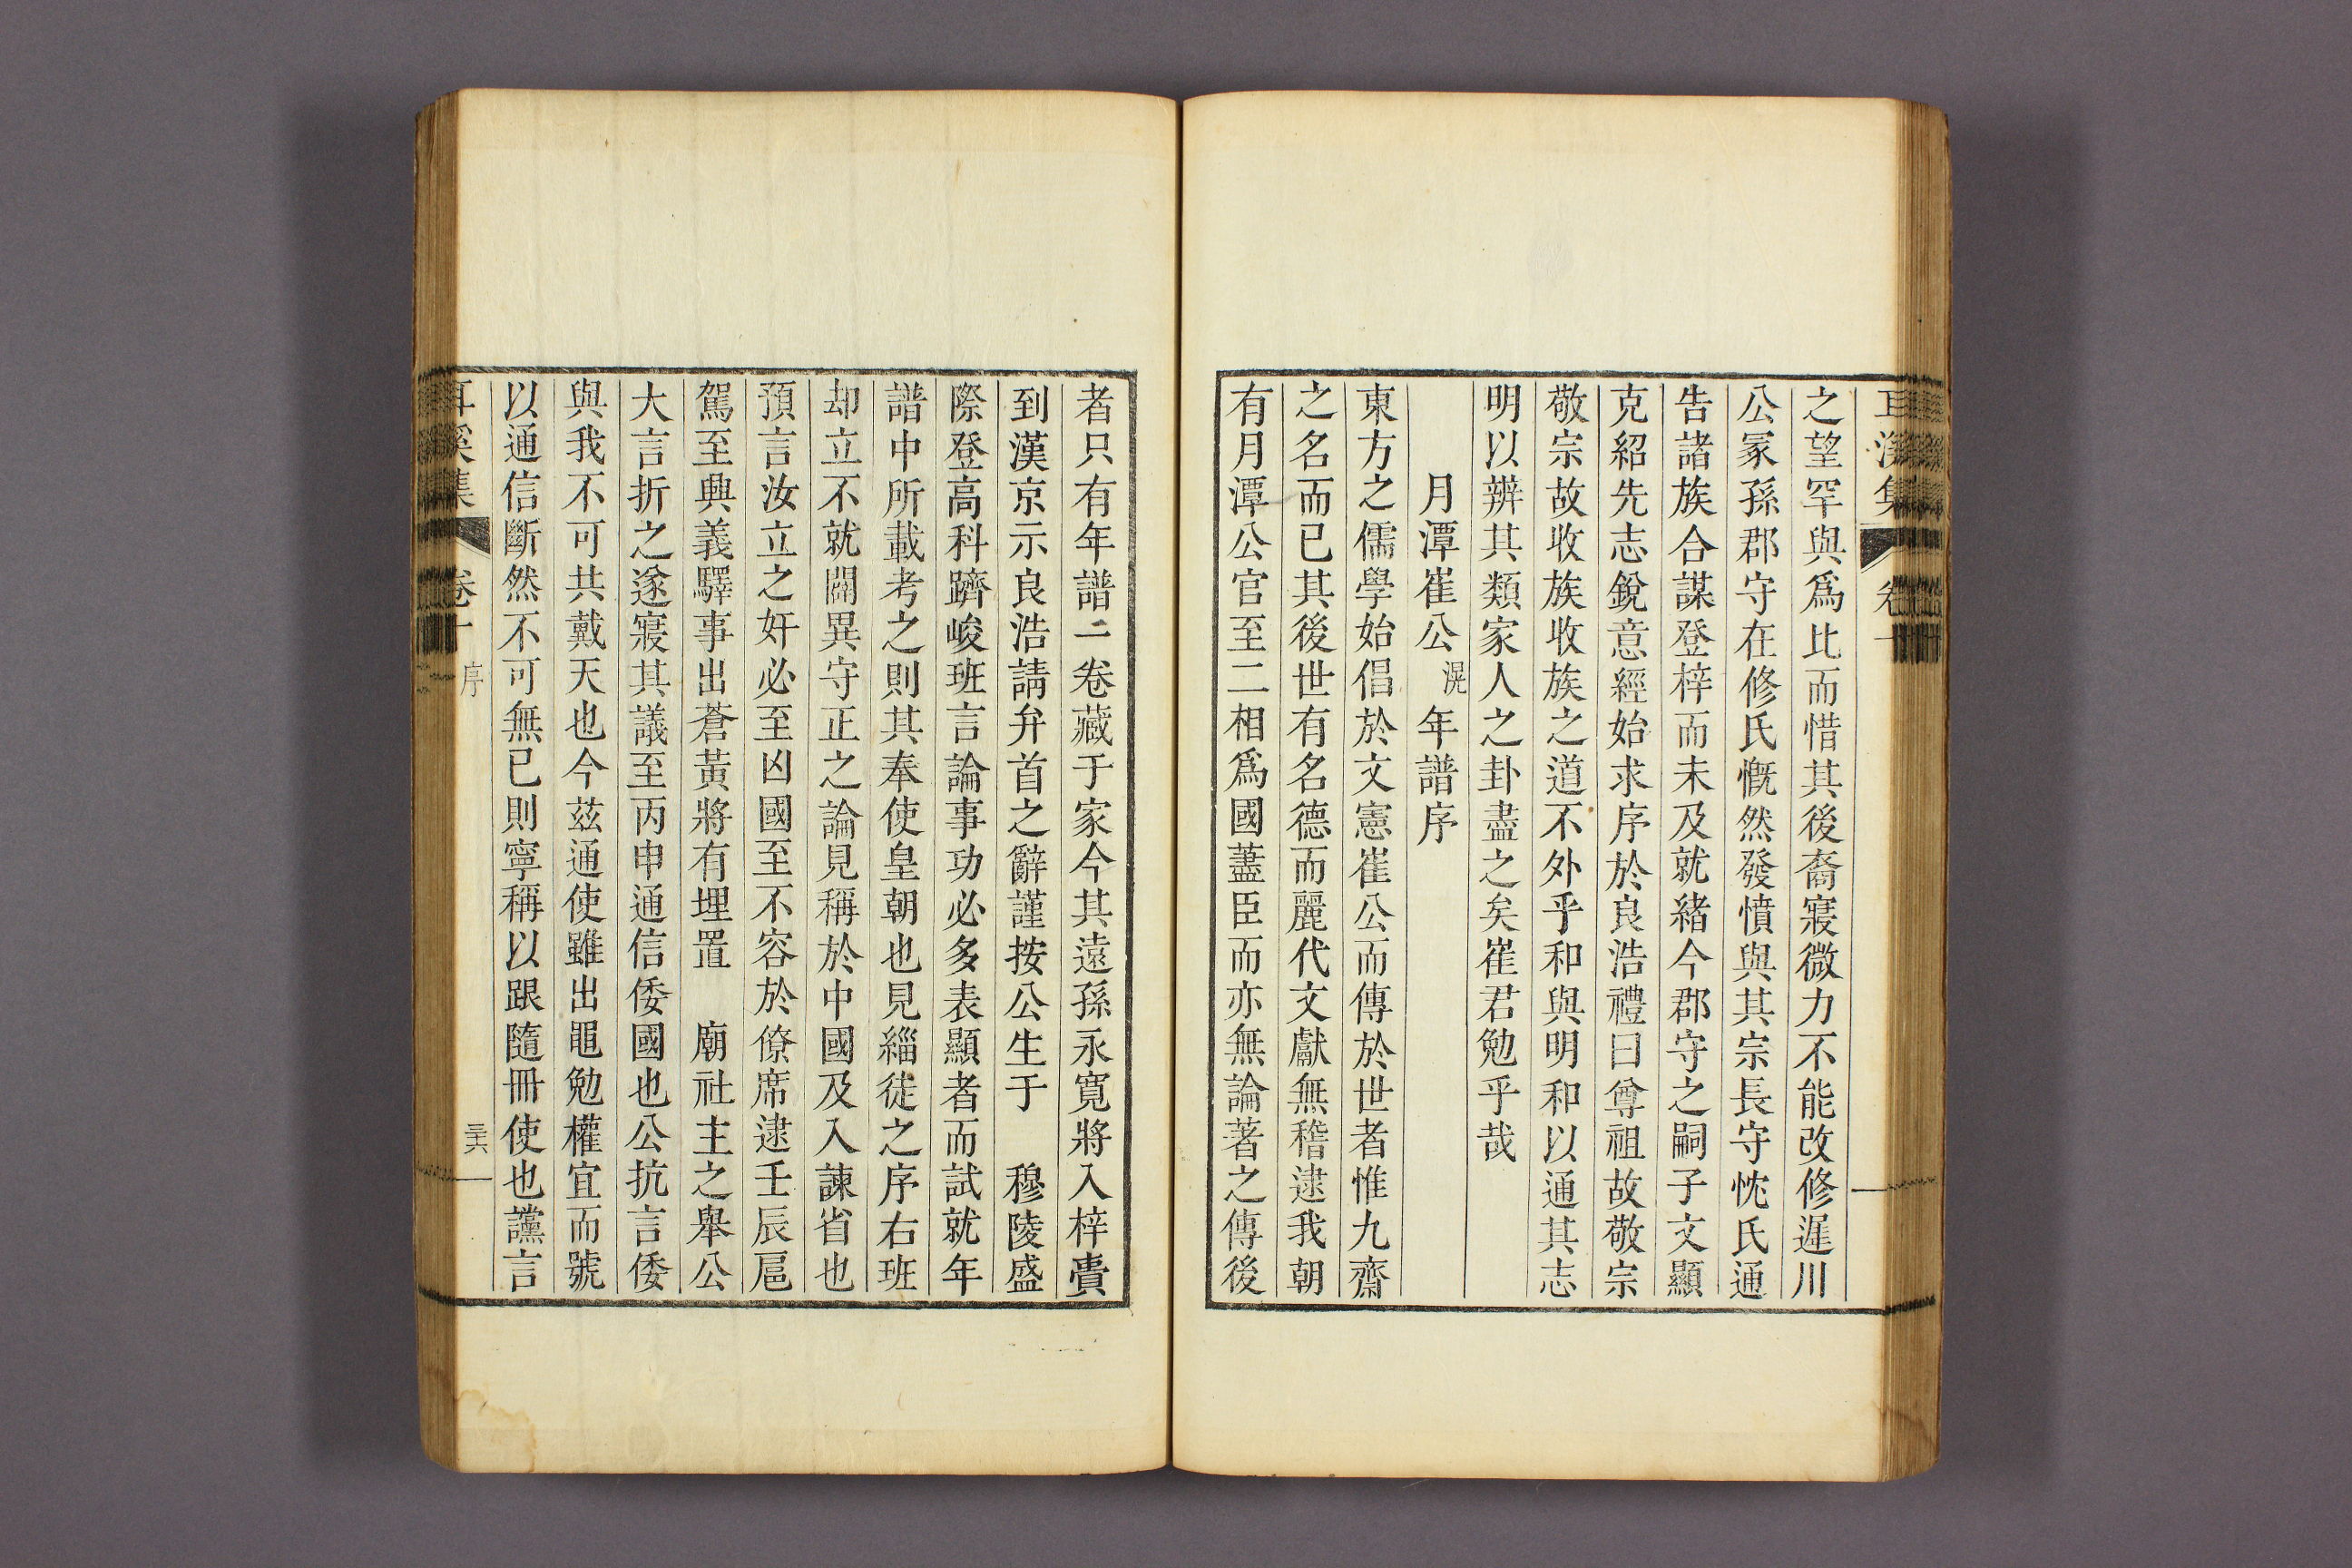 之望罕與爲比而惜其後裔寢微力不能改修遲川
公冢孫郡守在修氏慨然發憤與其宗長守忱氏通
告諸族合謀登梓而未及就緒今郡守之嗣子文顯
克紹先志銳意經始求序於良浩禮曰尊祖故敬宗
敬宗故收族收族之道不外乎和與明和以通其志
明以辨其類家人之卦盡之矣崔君勉乎哉
月潭崔公滉年譜序
東方之儒學始倡於文憲崔公而傳於世者惟九齋
之名而已其後世有名德而麗代文獻無稽逮我朝
有月潭公官至二相爲國藎臣而亦無論著之傳後
者只有年譜二卷藏于家今其遠孫永寬將入梓賷
到漢京示良浩請弁首之辭謹按公生于 穆陵盛
際登高科躋峻班言論事功必多表顯者而試就年
譜中所載考之則其奉使皇朝也見緇徒之序右班
却立不就闢異守正之論見稱於中國及入諫省也
預言汝立之奸必至凶國至不容於僚席逮壬辰扈
駕至興義驛事出蒼黃將有埋置 廟社主之舉公
大言折之遂寢其議至丙申通信倭國也公抗言倭
與我不可共戴天也今茲通使雖出黽勉權宜而號
以通信斷然不可無已則寧稱以跟隨冊使也讜言
耳溪集 卷十 序